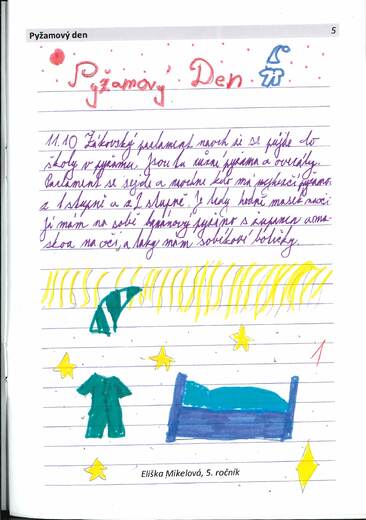 Pyžamový den
5
Pyžamový Den
11.10 Žákovský parlament navrh si se půjde do
školy v pyžamu. Jsou tu různé pyžama a overaly.
Parlament se sejde a kdo má nejhezčí pyžamo
z 1 stupně a z 2 stupně. Je tady hodně masek na oči
já mám na sobě pyžamo s županem a ma-
skou na oči, a taky mám sovíčkové bótičky.
1
Eliška Mikelová, 5. ročník